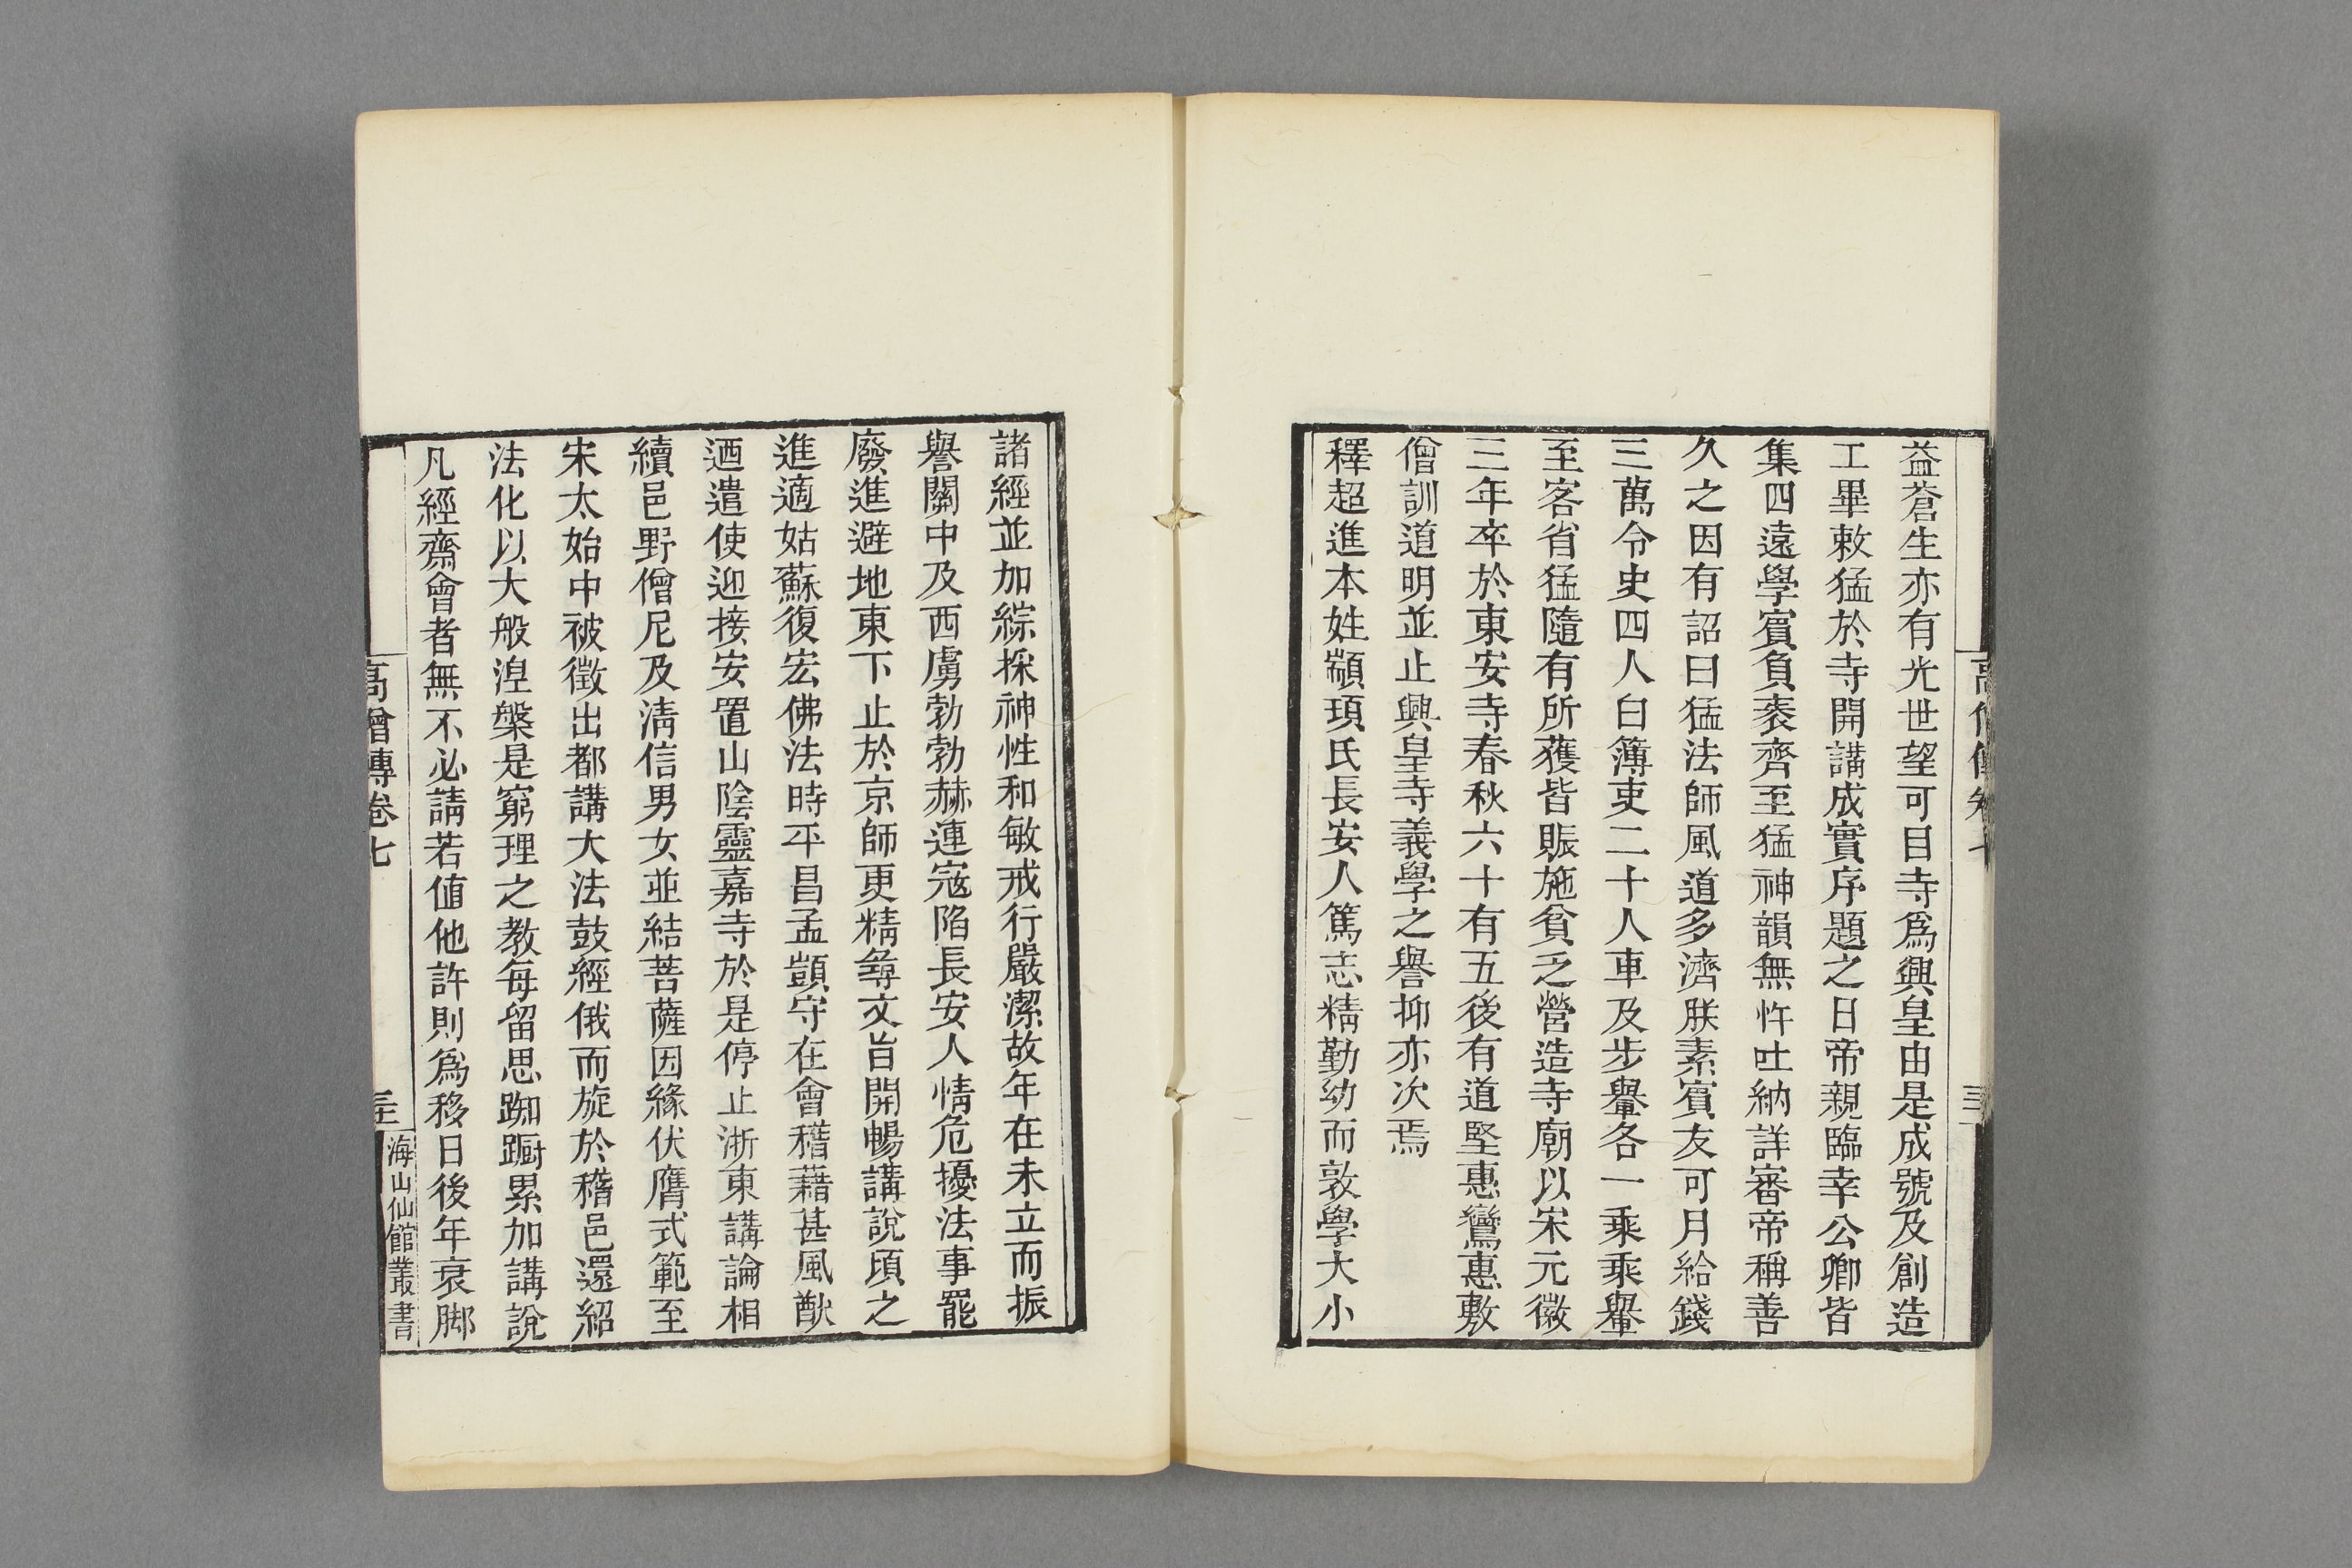 益蒼生亦有光世望可目寺爲興皇由是成號及創造
工畢敕猛於寺開講成實序題之日帝親臨幸公卿皆
集四遠學賓負袠齊至猛神韻無忤吐納詳審帝稱善
久之因有詔曰猛法師風道多濟朕素賓友可月給錢
三萬令史四人白簿吏二十人車及步轝各一乘乘轝
至客省猛隨有所獲皆賑施貧乏營造寺廟以宋元徽
三年卒於東安寺春秋六十有五後有道堅惠鸞惠敷
僧訓道明並止興皇寺義學之譽抑亦次焉
釋超進本姓顓頊氏長安人篤志精勤幼而敦學大小
諸經並加綜採神性和敏戒行嚴潔故年在未立而振
譽關中及西虜勃勃赫連寇陷長安人情危擾法事罷
廢進避地東下止於京師更精尋文旨開暢講說頃之
進適姑蘇復宏佛法時平昌孟顗守在會稽藉甚風猷
迺遣使迎接安置山陰靈嘉寺於是停止浙東講論相
續邑野僧尼及淸信男女並結菩薩因緣伏膺式範至
宋太始中被徵出都講大法鼓經俄而旋於稽邑還紹
法化以大般湼槃是窮理之教每留思踟蹰累加講說
凡經齋會者無不必請若値他許則爲移日後年衰脚
高僧傳卷七
海山仙館叢書